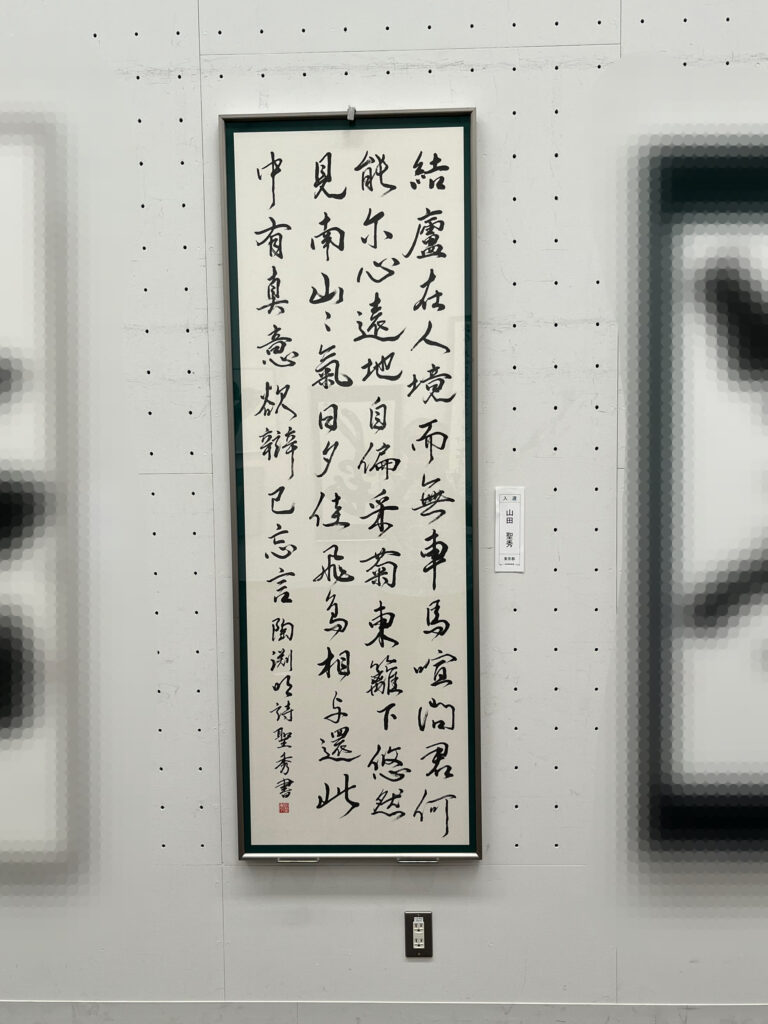 結廬在人境而無車馬喧問君何
能尓心遠地自偏采菊東籬下悠然
見南山〻氣日夕佳飛鳥相与還此
中有真意欲辯已忘言陶渊明詩聖秀書
入選
山田 聖秀